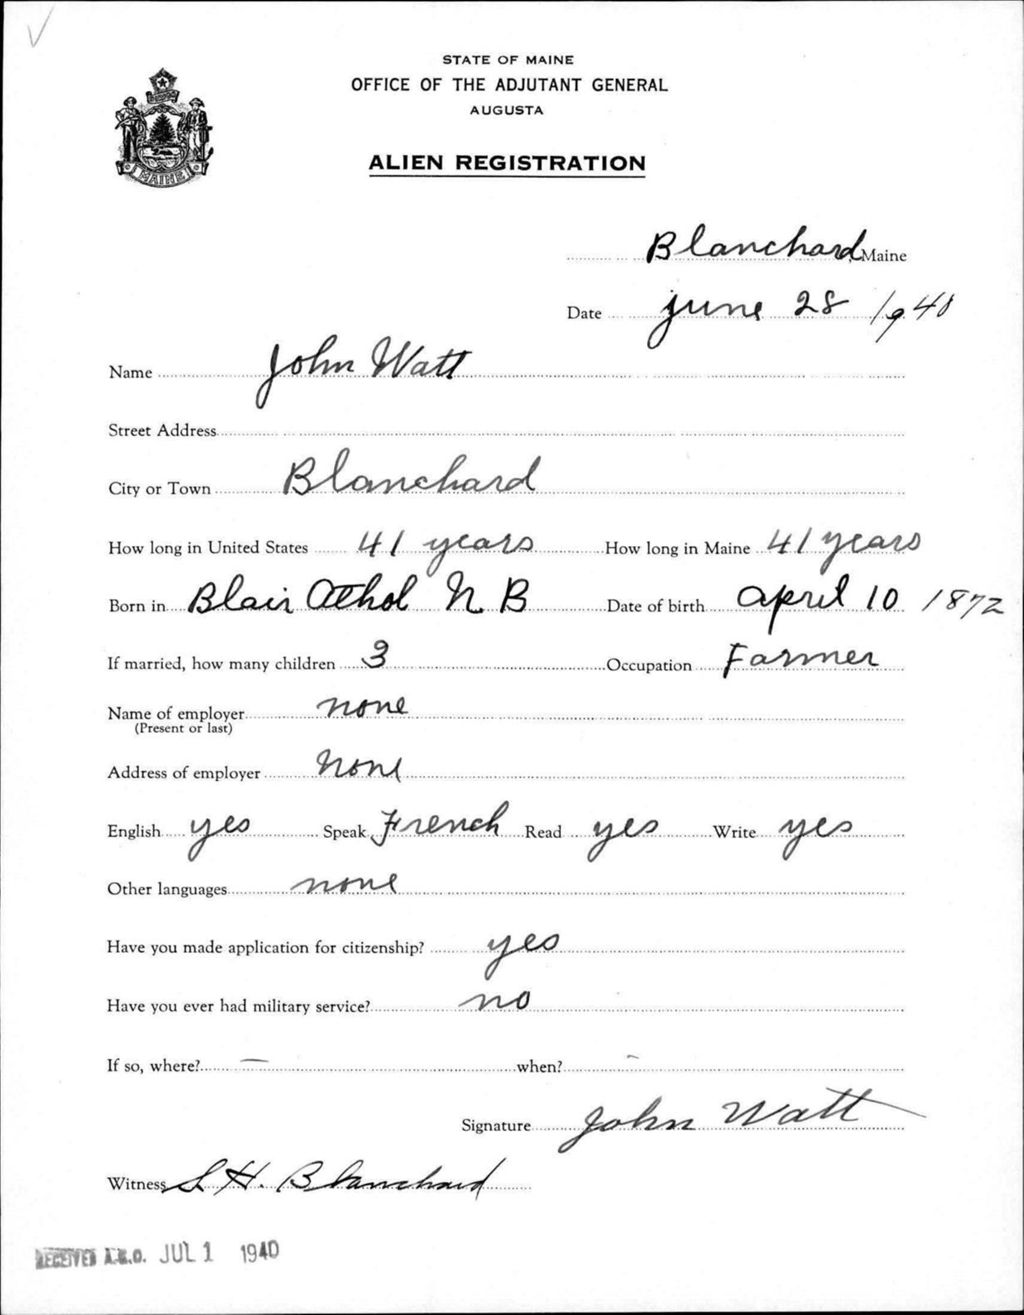 STATE OF MAINE
OFFICE OF THE ADJUTANT GENERAL
AUGUSTA
MAINE
ALIEN REGISTRATION
Blanchard, Maine
Date June 28 1940
Name John Watt
Street Address
City or Town Blanchard
How long in United States 41 years How long in Maine 41 years
Born in Blair Athol N. B Date of birth April 10 1872
If married, how many children 3 Occupation Farmer
Name of employer none
(Present or last)
Address of employer None
English yes Speak French Read yes Write yes
Other languages none
Have you made application for citizenship? yes
Have you ever had military service? no
If so, where? — when? -
Signature John Watt
Witness S. H. Blanchard
RECEIVED A.G.O. JUL 1 1940